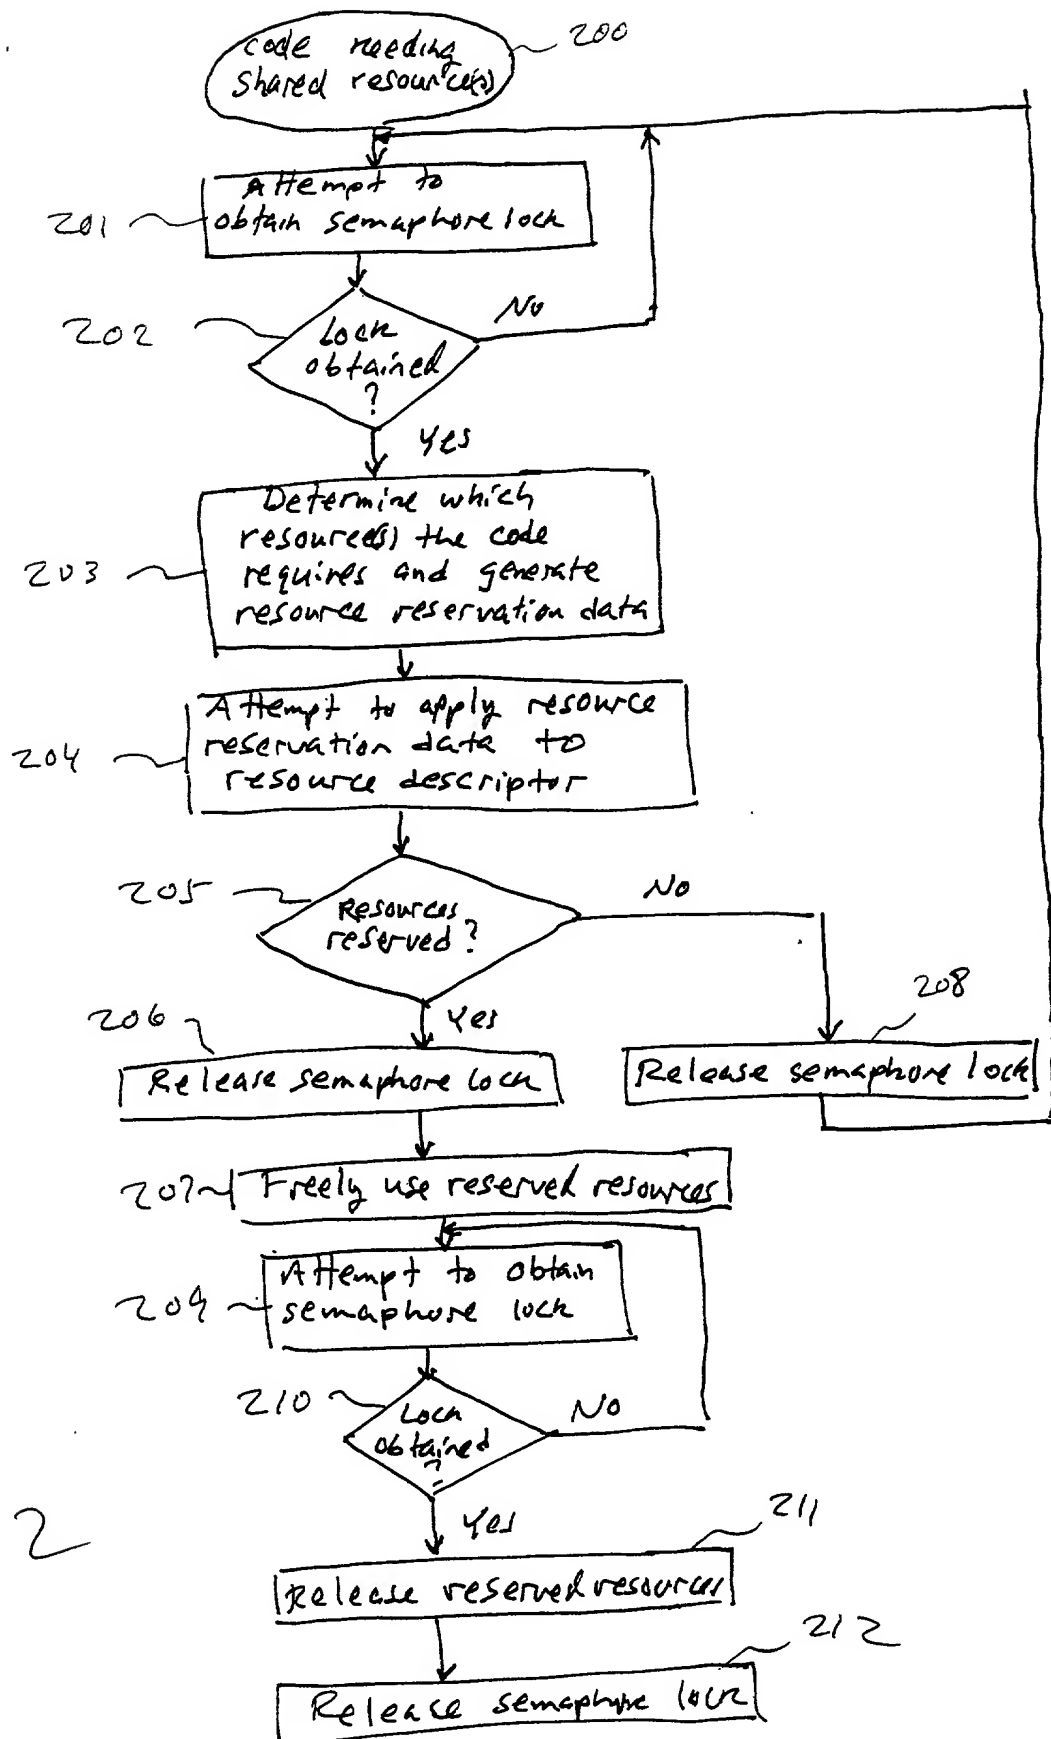 code needing
shared resource(s)
200
Attempt to
obtain semaphore lock
201
Lock
obtained
?
202
No
Yes
Determine which
resource(s) the code
requires and generate
resource reservation data
203
Attempt to apply resource
reservation data to
resource descriptor
204
Resources
reserved?
205
No
Yes
206
Release semaphore lock
208
Release semaphore lock
207
Freely use reserved resources
Attempt to obtain
semaphore lock
209
210
Lock
obtained
?
No
Yes
2
211
Release reserved resources
212
Release semaphore lock